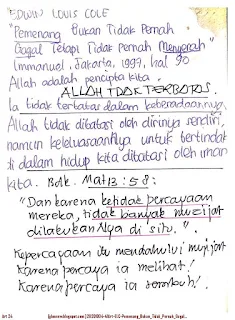 EDWIN LOUIS COLE
"Pemenang Bukan Tidak Pernah
Gagal Tetapi Tidak Pernah Menyerah"
Immanuel, Jakarta, 1997, hal 90
Allah adalah pencipta kita.
ALLAH TDAK TERBATAS.
Ia tidak terbatas dalam keberadaannya
Allah tidak dibatasi oleh dirinya sendiri,
namun keleluasaanNya untuk bertindak
di dalam hidup kita dibatasi oleh iman
kita. Bdk. Mat 13:58:
"Dan karena ketidak percayaan
mereka, tidak banyak mujizat
dilakukanNya di situ."
Kepercayaan itu mendahului mujijat
Karena percaya ia melihat!
Karena percaya ia sembuh!